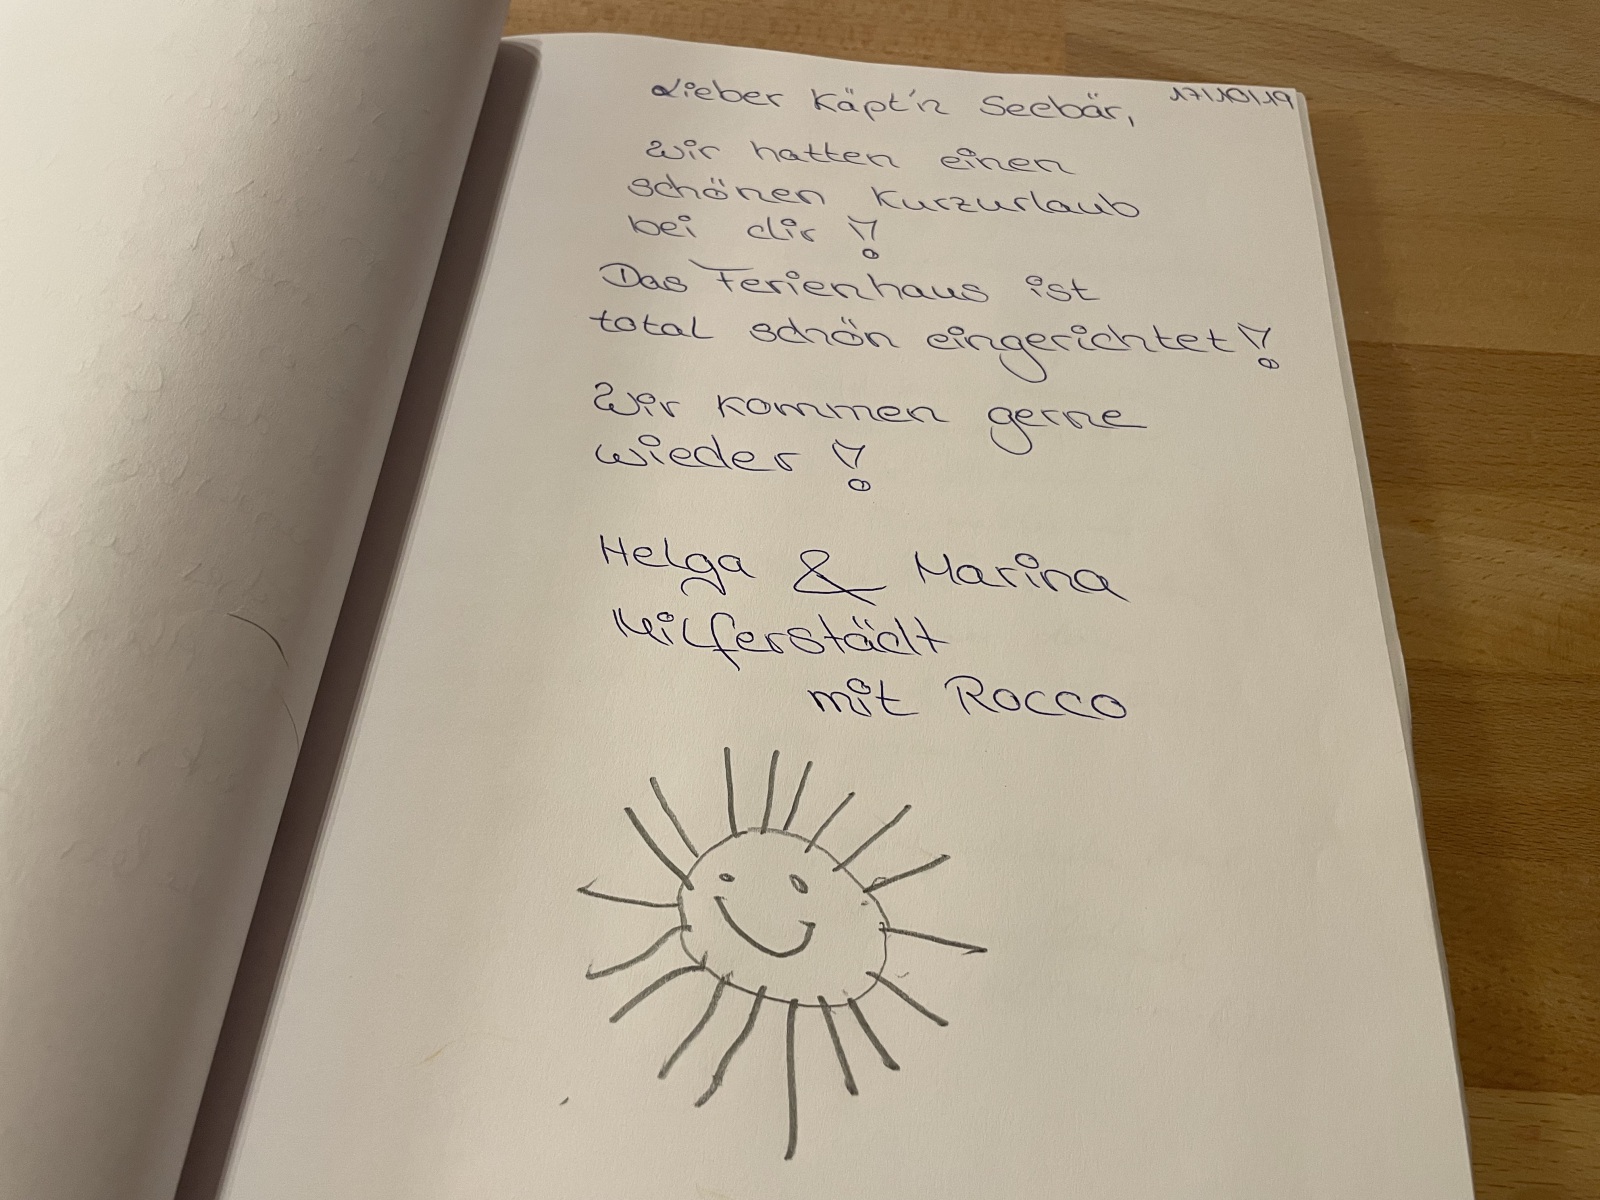 Lieber Käpt'n Seebär, 17/10/19
wir hatten einen
schönen Kurzurlaub
bei dir !
Das Ferienhaus ist
total schön eingerichtet !
Wir kommen gerne
wieder !
Helga & Marina
Hilferstädt
mit Rocco